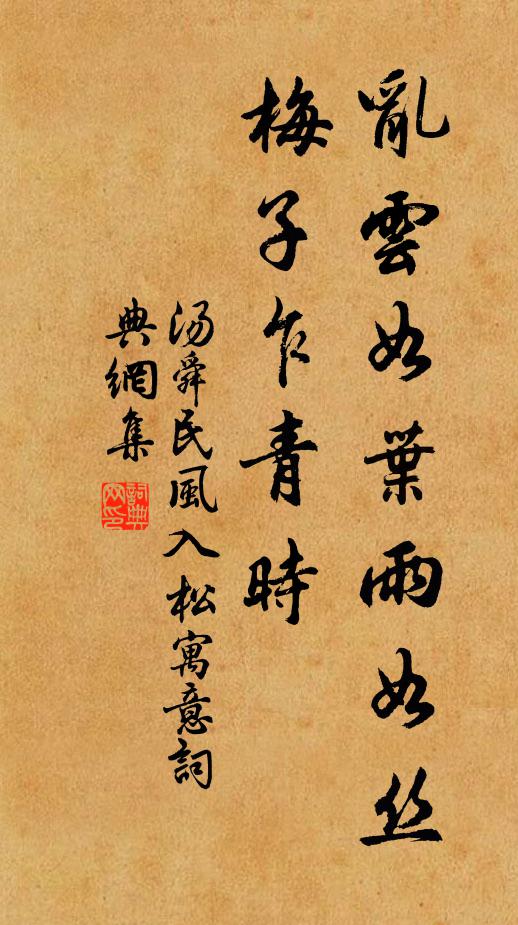 亂雲如葉雨如丝
梅子乍青時
汤舜民風入松寓意詞
典網集
詞典
网印